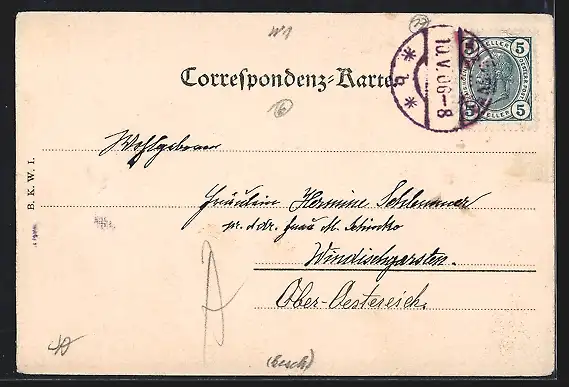 W1
Correspondenz-Karte
10.V.06-8
* b *
5 HELLER 5
5 HELLER 5
B. K. W. I.
Wohlgeboren
Fräulein Hermine Schlemmer
pr. Adr. Frau M. Schincko
Windischgarsten.
Ober-Oestereich.
(Besch)